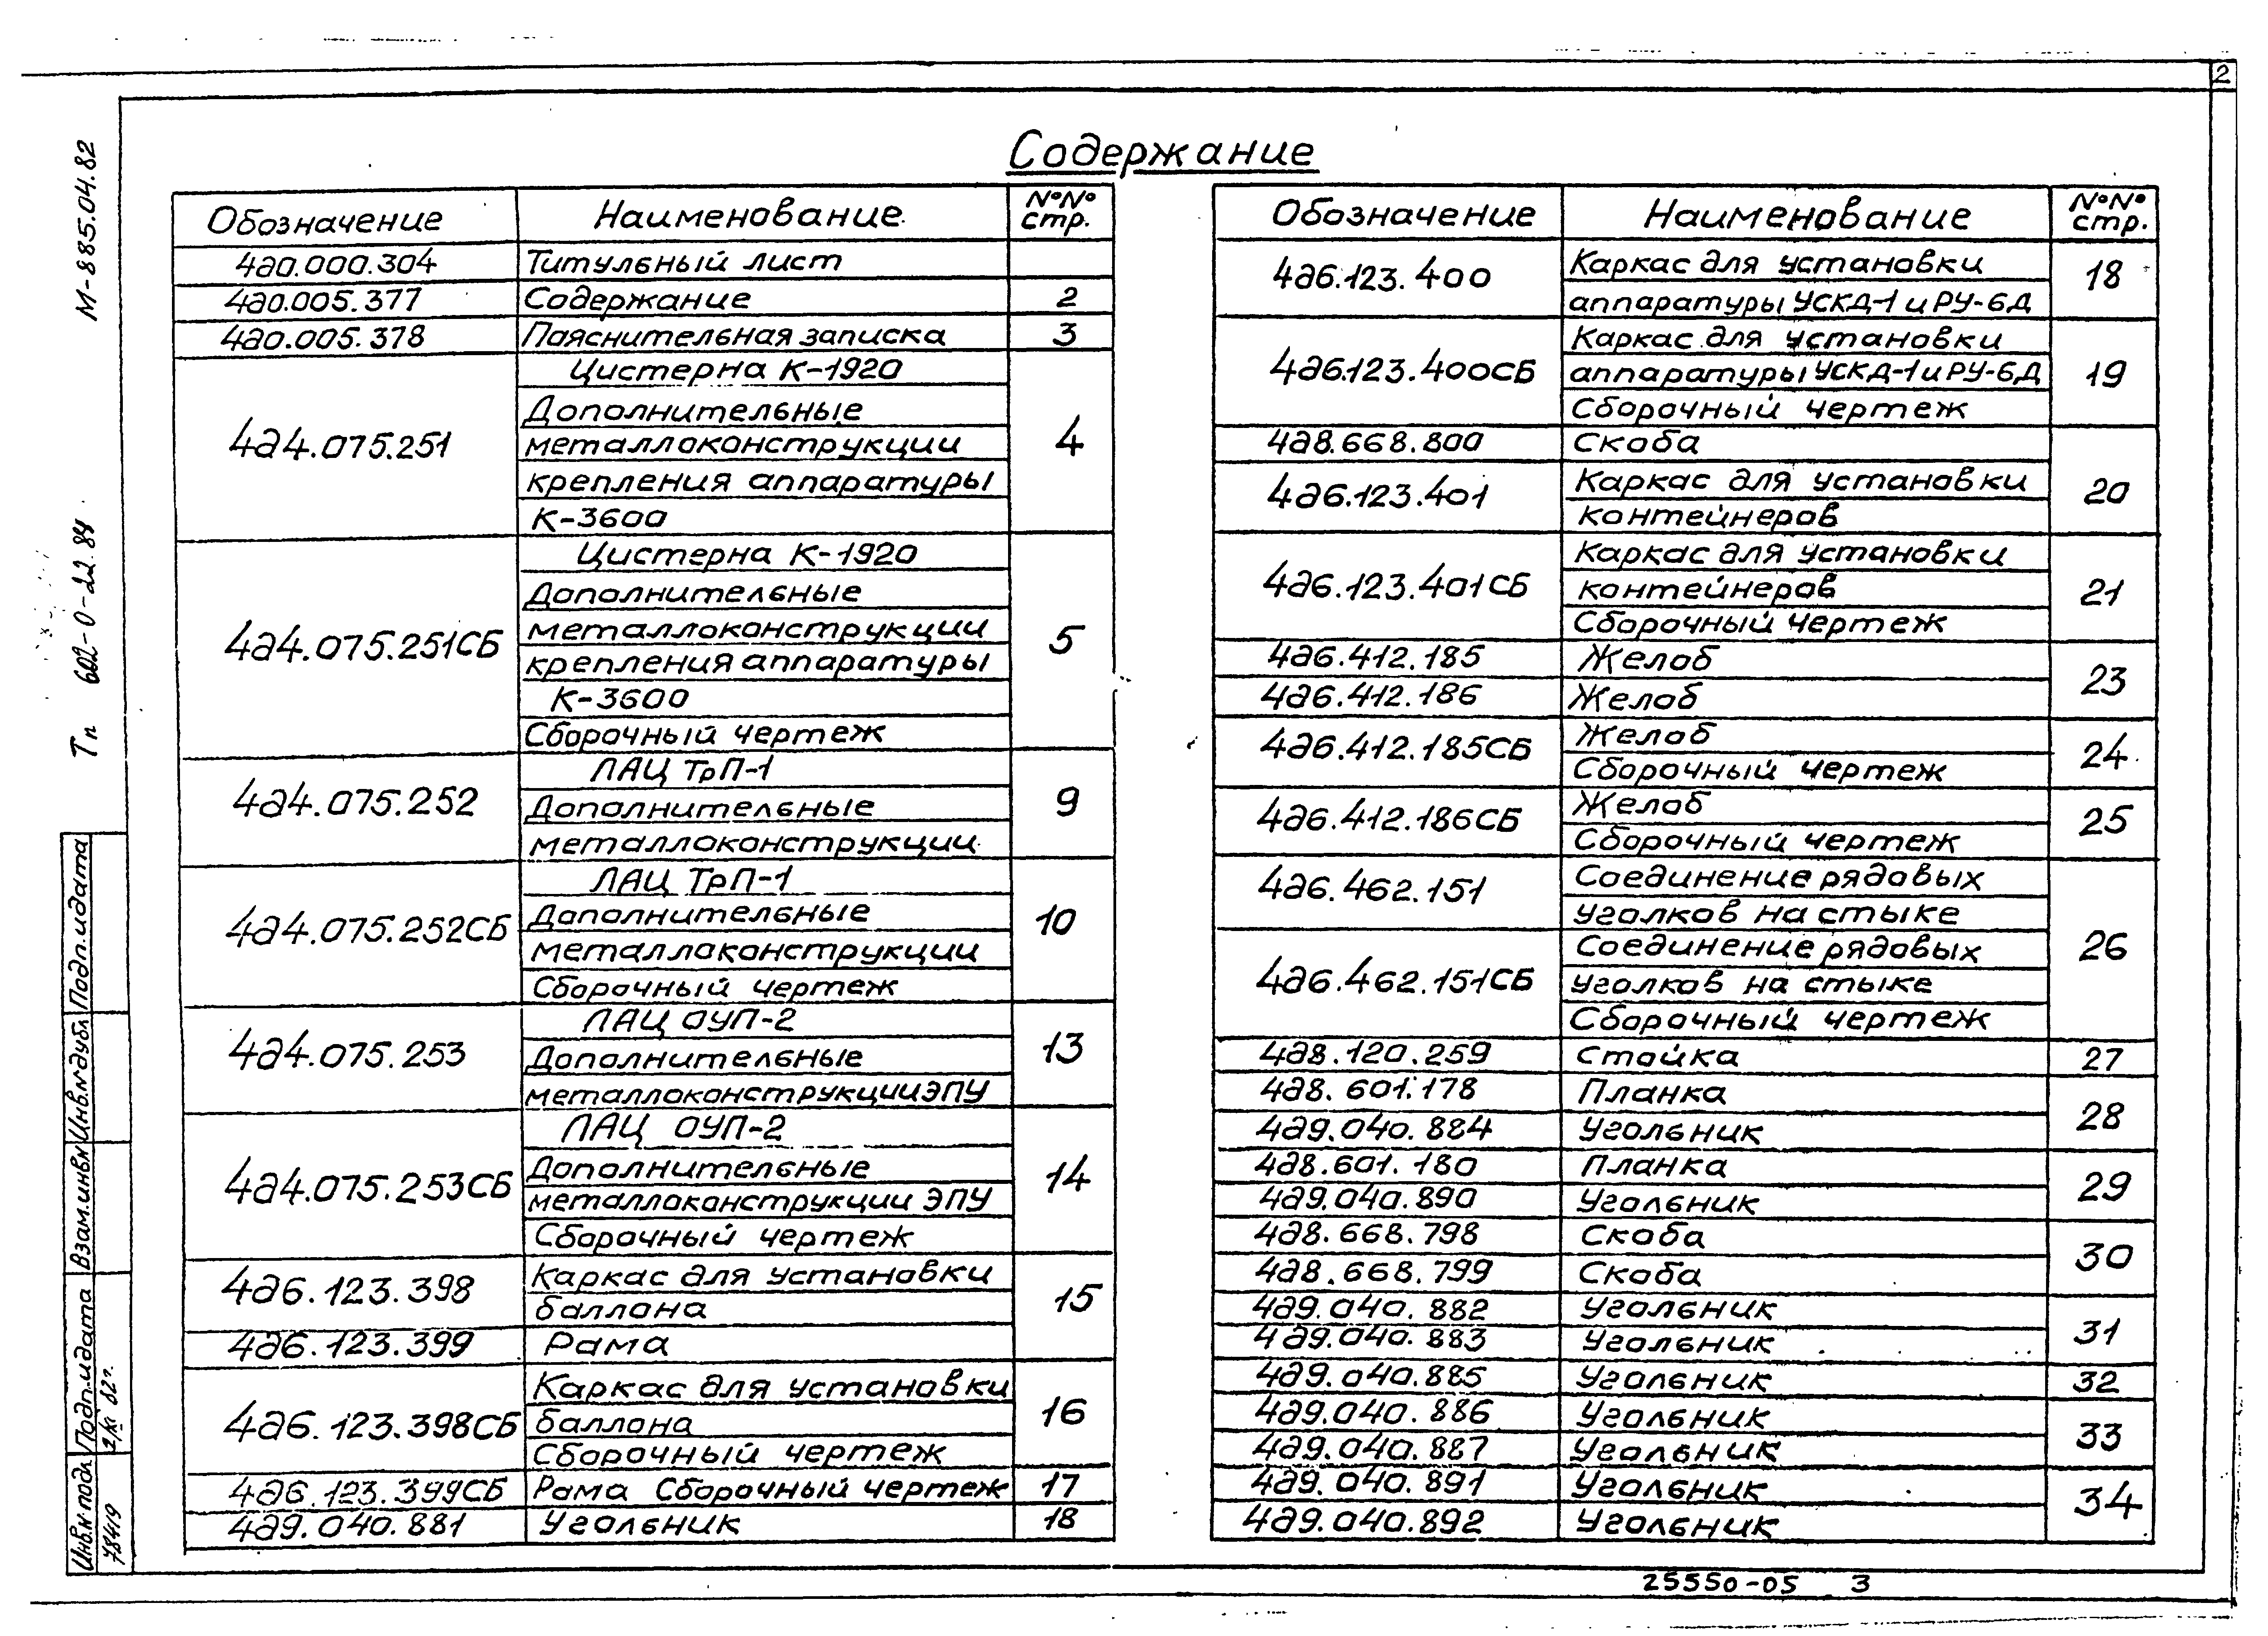 2
М-885.04.82
Тп 602-0-22.84
Содержание
Обозначение Наименование №№ стр.
4д0.000.304 Титульный лист
4д0.005.377 Содержание 2
4д0.005.378 Пояснительная записка 3
4д4.075.251 Цистерна К-1920 4
Дополнительные
металлоконструкции
крепления аппаратуры
К-3600
4д4.075.251СБ Цистерна К-1920 5
Дополнительные
металлоконструкции
крепления аппаратуры
К-3600
Сборочный чертеж
4д4.075.252 ЛАЦ ТрП-1 9
Дополнительные
металлоконструкции
4д4.075.252СБ ЛАЦ ТрП-1 10
Дополнительные
металлоконструкции
Сборочный чертеж
4д4.075.253 ЛАЦ ОУП-2 13
Дополнительные
металлоконструкции ЭПУ
4д4.075.253СБ ЛАЦ ОУП-2 14
Дополнительные
металлоконструкции ЭПУ
Сборочный чертеж
4д6.123.398 Каркас для установки 15
баллона
4д6.123.399 Рама
4д6.123.398СБ Каркас для установки 16
баллона
Сборочный чертеж
4д6.123.399СБ Рама Сборочный чертеж 17
4д9.040.881 Угольник 18
Обозначение Наименование №№ стр.
4д6.123.400 Каркас для установки 18
аппаратуры УСКД-1 и РУ-6Д
4д6.123.400СБ Каркас для установки 19
аппаратуры УСКД-1 и РУ-6Д
Сборочный чертеж
4д8.668.800 Скоба 20
4д6.123.401 Каркас для установки
контейнеров
4д6.123.401СБ Каркас для установки 21
контейнеров
Сборочный чертеж
4д6.412.185 Желоб 23
4д6.412.186 Желоб
4д6.412.185СБ Желоб 24
Сборочный чертеж
4д6.412.186СБ Желоб 25
Сборочный чертеж
4д6.462.151 Соединение рядовых 26
уголков на стыке
4д6.462.151СБ Соединение рядовых
уголков на стыке
Сборочный чертеж
4д8.120.259 Стойка 27
4д8.601.178 Планка 28
4д9.040.884 Угольник
4д8.601.180 Планка 29
4д9.040.890 Угольник
4д8.668.798 Скоба 30
4д8.668.799 Скоба
4д9.040.882 Угольник 31
4д9.040.883 Угольник
4д9.040.885 Угольник 32
4д9.040.886 Угольник 33
4д9.040.887 Угольник
4д9.040.891 Угольник 34
4д9.040.892 Угольник
Инв.№ подл Подп. и дата Взам.инв.№ Инв.№ дубл Подп. и дата
78419
25550-05 3